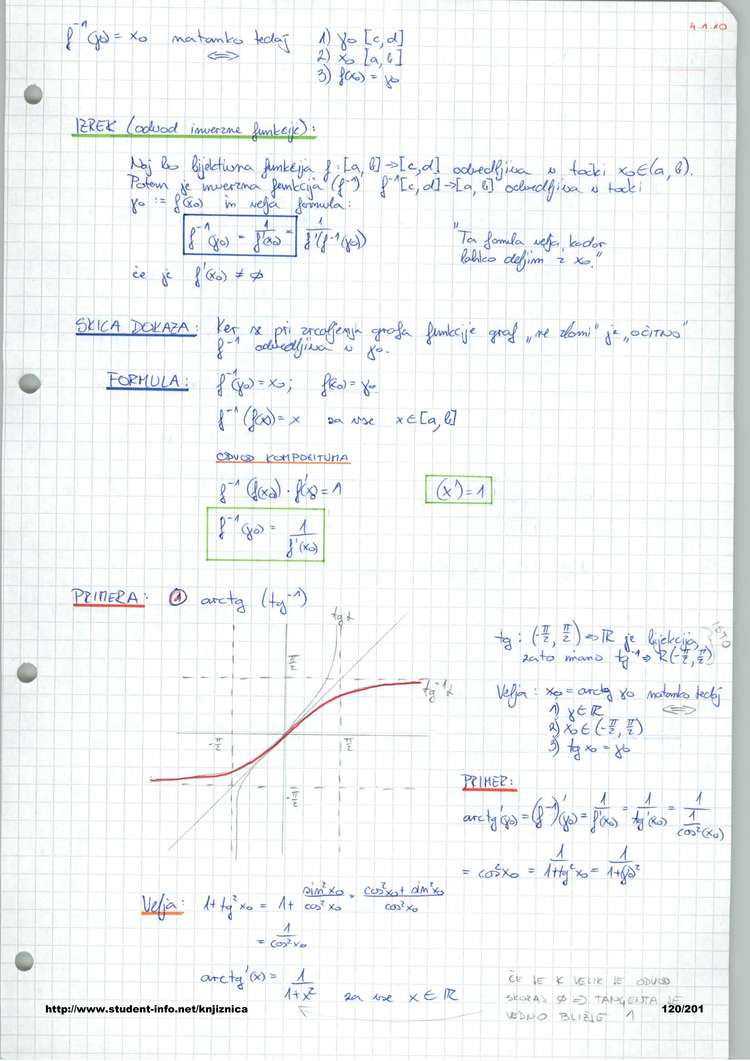 4.1.10
f⁻¹(y₀) = x₀ natanko tedaj ⇔ 1) y₀ [c, d]
2) x₀ [a, b]
3) f(x₀) = y₀
IZREK (odvod inverzne funkcije):
Naj bo bijektivna funkcija f: [a, b] → [c, d] odvedljiva v točki x₀ ∈ (a, b).
Potem je inverzna funkcija (f⁻¹) f⁻¹ [c, d] → [a, b] odvedljiva v točki
y₀ := f(x₀) in velja formula:
f⁻¹(y₀) = 1/f'(x₀) = 1/f'(f⁻¹(y₀))
"Ta formula velja, kadar
lahko delim z x₀."
če je f'(x₀) ≠ ∅
SKICA DOKAZA: Ker se pri zrcaljenju grafa funkcije graf „ne zlomi" je „OČITNO"
f⁻¹ odvedljiva v y₀.
FORMULA: f⁻¹(y₀) = x₀; f(x₀) = y₀
f⁻¹(f(x)) = x za vse x ∈ [a, b]
ODVOD KOMPOZITUMA
f⁻¹(f(x₀)) · f'(x₀) = 1
(x') = 1
f⁻¹(y₀) = 1/f'(x₀)
PRIMERA: ① arctg (tg⁻¹)
tg α
π/2
tg⁻¹ α
-π/2
π/2
-π/2
tg: (-π/2, π/2) → ℝ je bijekcija,
zato imamo tg⁻¹ → ℝ(-π/2, π/2)
Velja: x₀ = arctg y₀ natanko tedaj ⇔
1) y ∈ ℝ
2) x₀ ∈ (-π/2, π/2)
3) tg x₀ = y₀
PRIMER:
arctg'(y₀) = (f⁻¹)'(y₀) = 1/f'(x₀) = 1/tg'(x₀) = 1/(1/cos²(x₀))
= cos²x₀ = 1/(1+tg²x₀) = 1/(1+(y₀)²)
Velja: 1 + tg²x₀ = 1 + sin²x₀/cos²x₀ = (cos²x₀ + sin²x₀)/cos²x₀
= 1/cos²x₀
arctg'(x) = 1/(1+x²) za vse x ∈ ℝ
ČE JE X VELIK JE ODVOD
SKORAJ ∅ ⇒ TANGENTA JE
VEDNO BLIŽJE 1
http://www.student-info.net/knjiznica
120/201